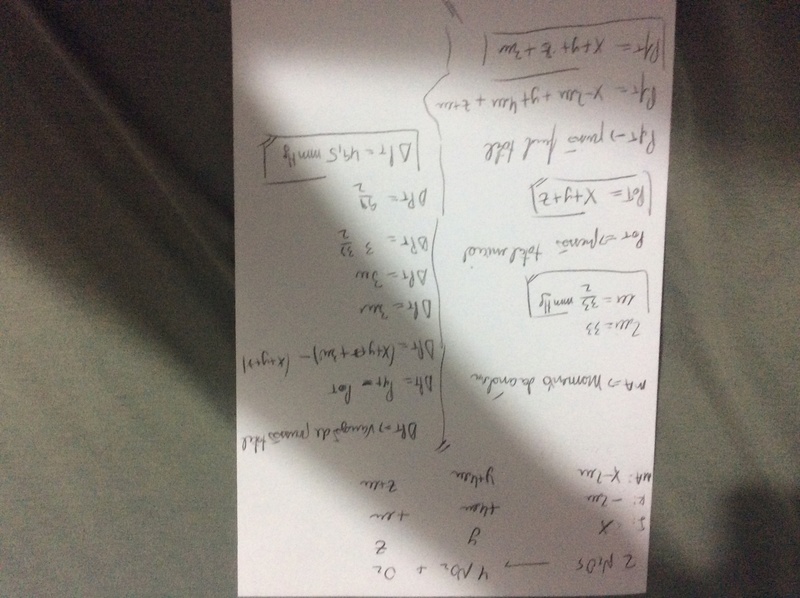 2 N2O5 → 4 NO2 + O2
I: X y z
R: -2m +4m +m
MA: X-2m y+4m z+m
MA => Momento da análise
2m = 33
m = 33/2 mmHg
POT => pressão total inicial
POT = X+y+z
PfT => pressão final total
PfT = X-2m+y+4m+z+m
PfT = X+y+z+3m
ΔPT => variação de pressão total
ΔPT = PfT - POT
ΔPT = (X+y+z+3m) - (X+y+z)
ΔPT = 3m
ΔPT = 3m
ΔPT = 3 33/2
ΔPT = 99/2
ΔPT = 49,5 mmHg